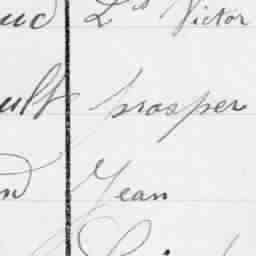 ud Ls Victor
ult prosper
nd Jean